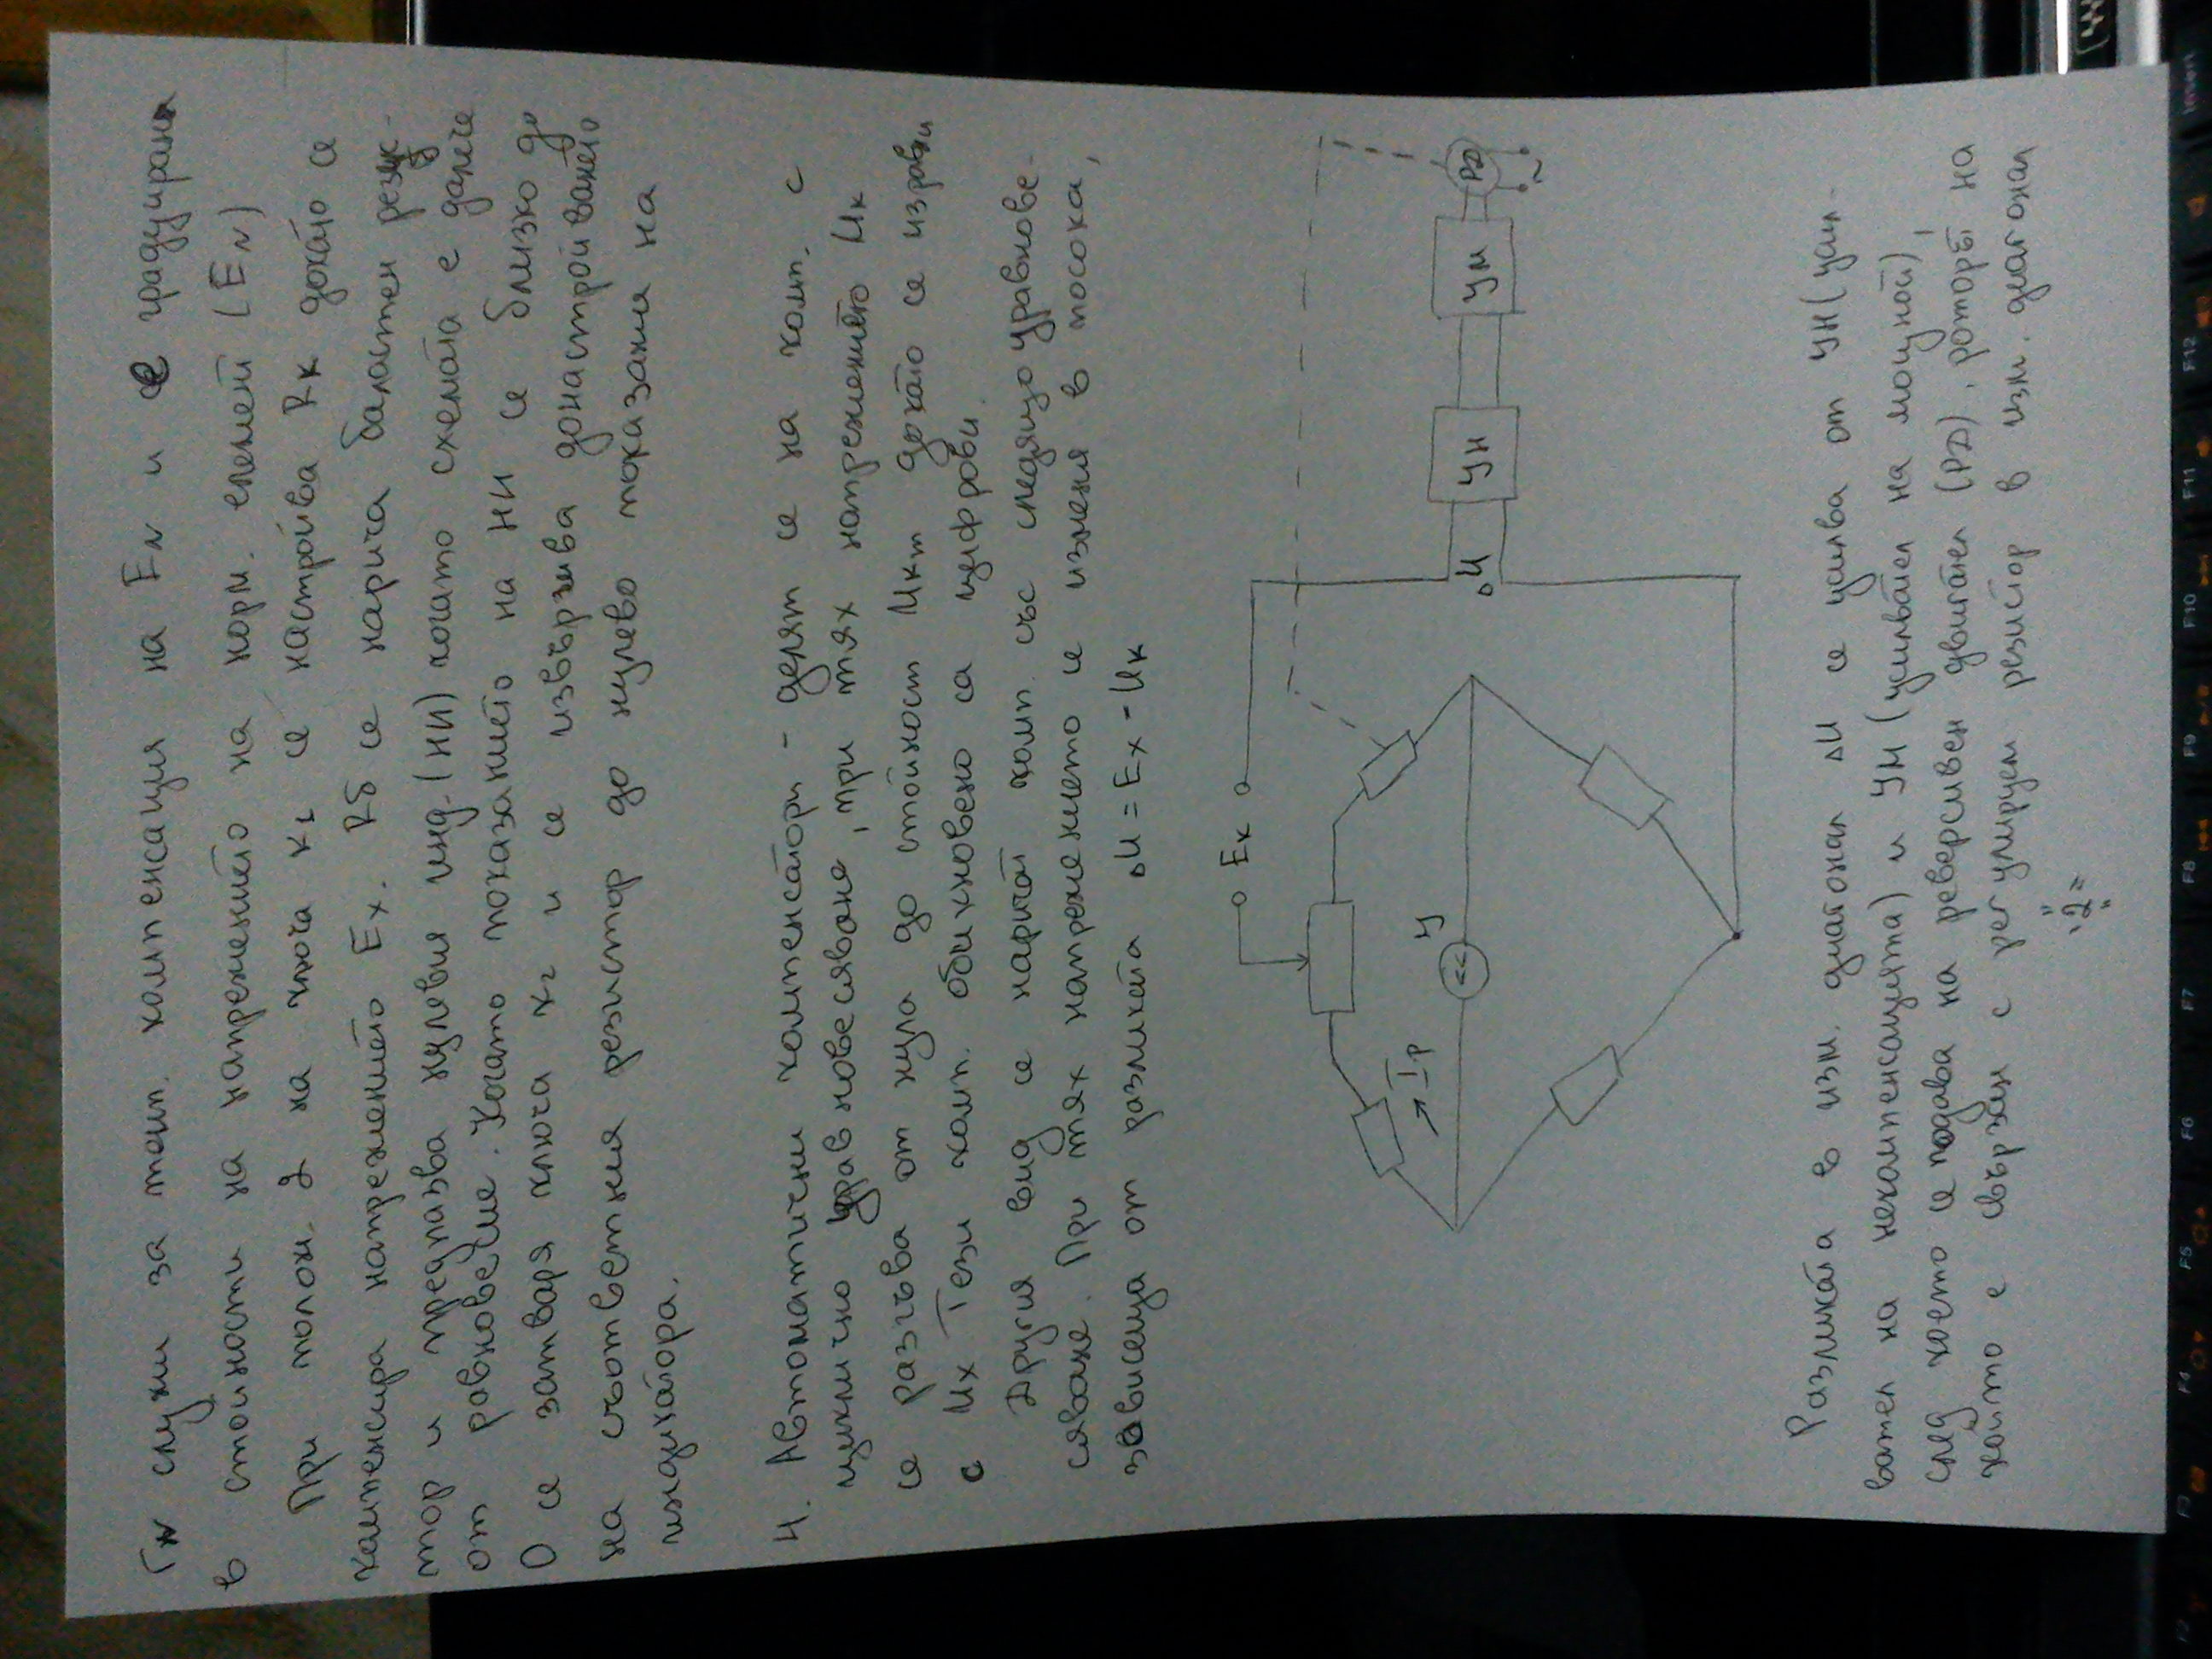 rN служи за темп. компенсация на EN и е градуирана
в стойности на напрежението на норм. елемент (EN)
При полож. 2 на ключа K1 се настройва Rк докато се
компенсира напрежението Ex. Rб се нарича баластен резис-
тор и предпазва нулевия инд. (НИ) когато схемата е далече
от равновесие. Когато показанието на НИ се близко до
0 се затваря ключа K2 и се извършва донастройването
на съответния резистор до нулево показание на
индикатора.
4. Автоматични компенсатори - делят се на комп. с
циклично уравновесяване, при тях напрежението Uк
се разгъва от нула до стойност Uкm докато се изравни
с Ux Тези комп. обикновено са цифрови.
Другия вид се наричат комп. със следящо уравнове-
сяване. При тях напрежението се изменя в посока,
зависеща от разликата ΔU = Ex - Uк
Ex
Ip
У
ΔU
УН
УМ
РД
~
Разликата в изм. диагонал ΔU се усилва от УН (усил-
вател на некомпенсацията) и УМ (усилвател на мощност),
след което се подава на реверсивен двигател (РД), ротора на
който е свързан с регулируем резистор в изм. диагонал
"2"
F2
F3
F4
F5
F6
F7
F8
F9
F10
F11
F12
Insert